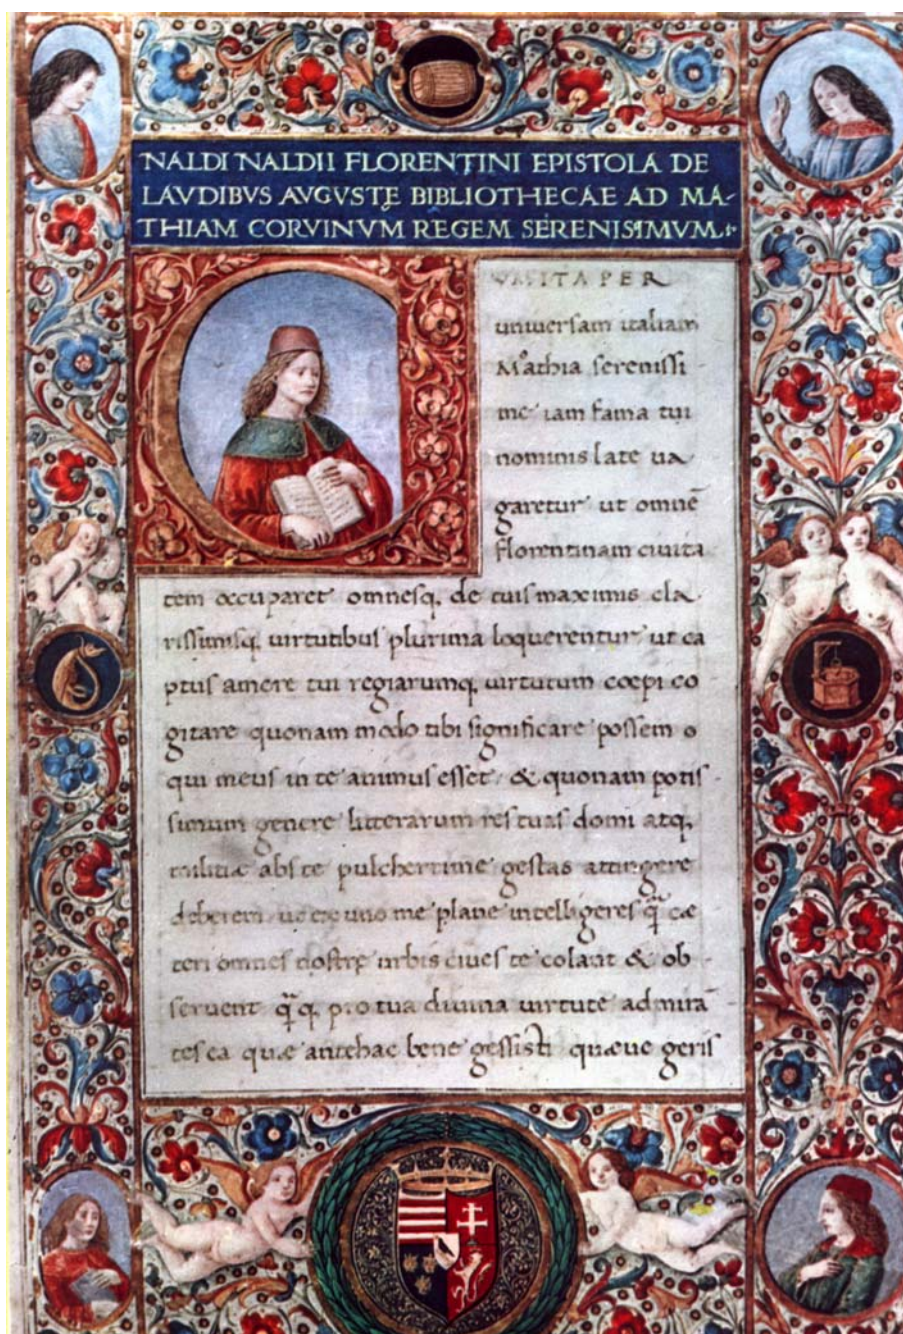 NALDI NALDII FLORENTINI EPISTOLA DE
LAVDIBVS AVGVSTĘ BIBLIOTHECAE AD MA-
THIAM CORVINVM REGEM SERENISSIMVM
ITA PER
universam italiam
Mathia serenissi-
me iam fama tui
nominis late va-
garetur ut omnē
florentinam civita
tem occuparet omnesq. de tuis maximis cla-
rissimisq. virtutibus plurima loquerentur ut ca
ptus amore tui regiarumq. virtutum coepi co
gitare quonam modo tibi significare possem
qui meus in te animus esset & quonam potis
simum genere litterarum res tuas domi atq.
militiæ abs te pulcherrime gestas attingere
deberem ut ex uno me plane intelligeres q̄ cæ
teri omnes nostrę urbis cives te colant & ob-
servent q̄q. pro tua divina virtute admirā-
tes ea quæ antehac bene gessisti quæve geris